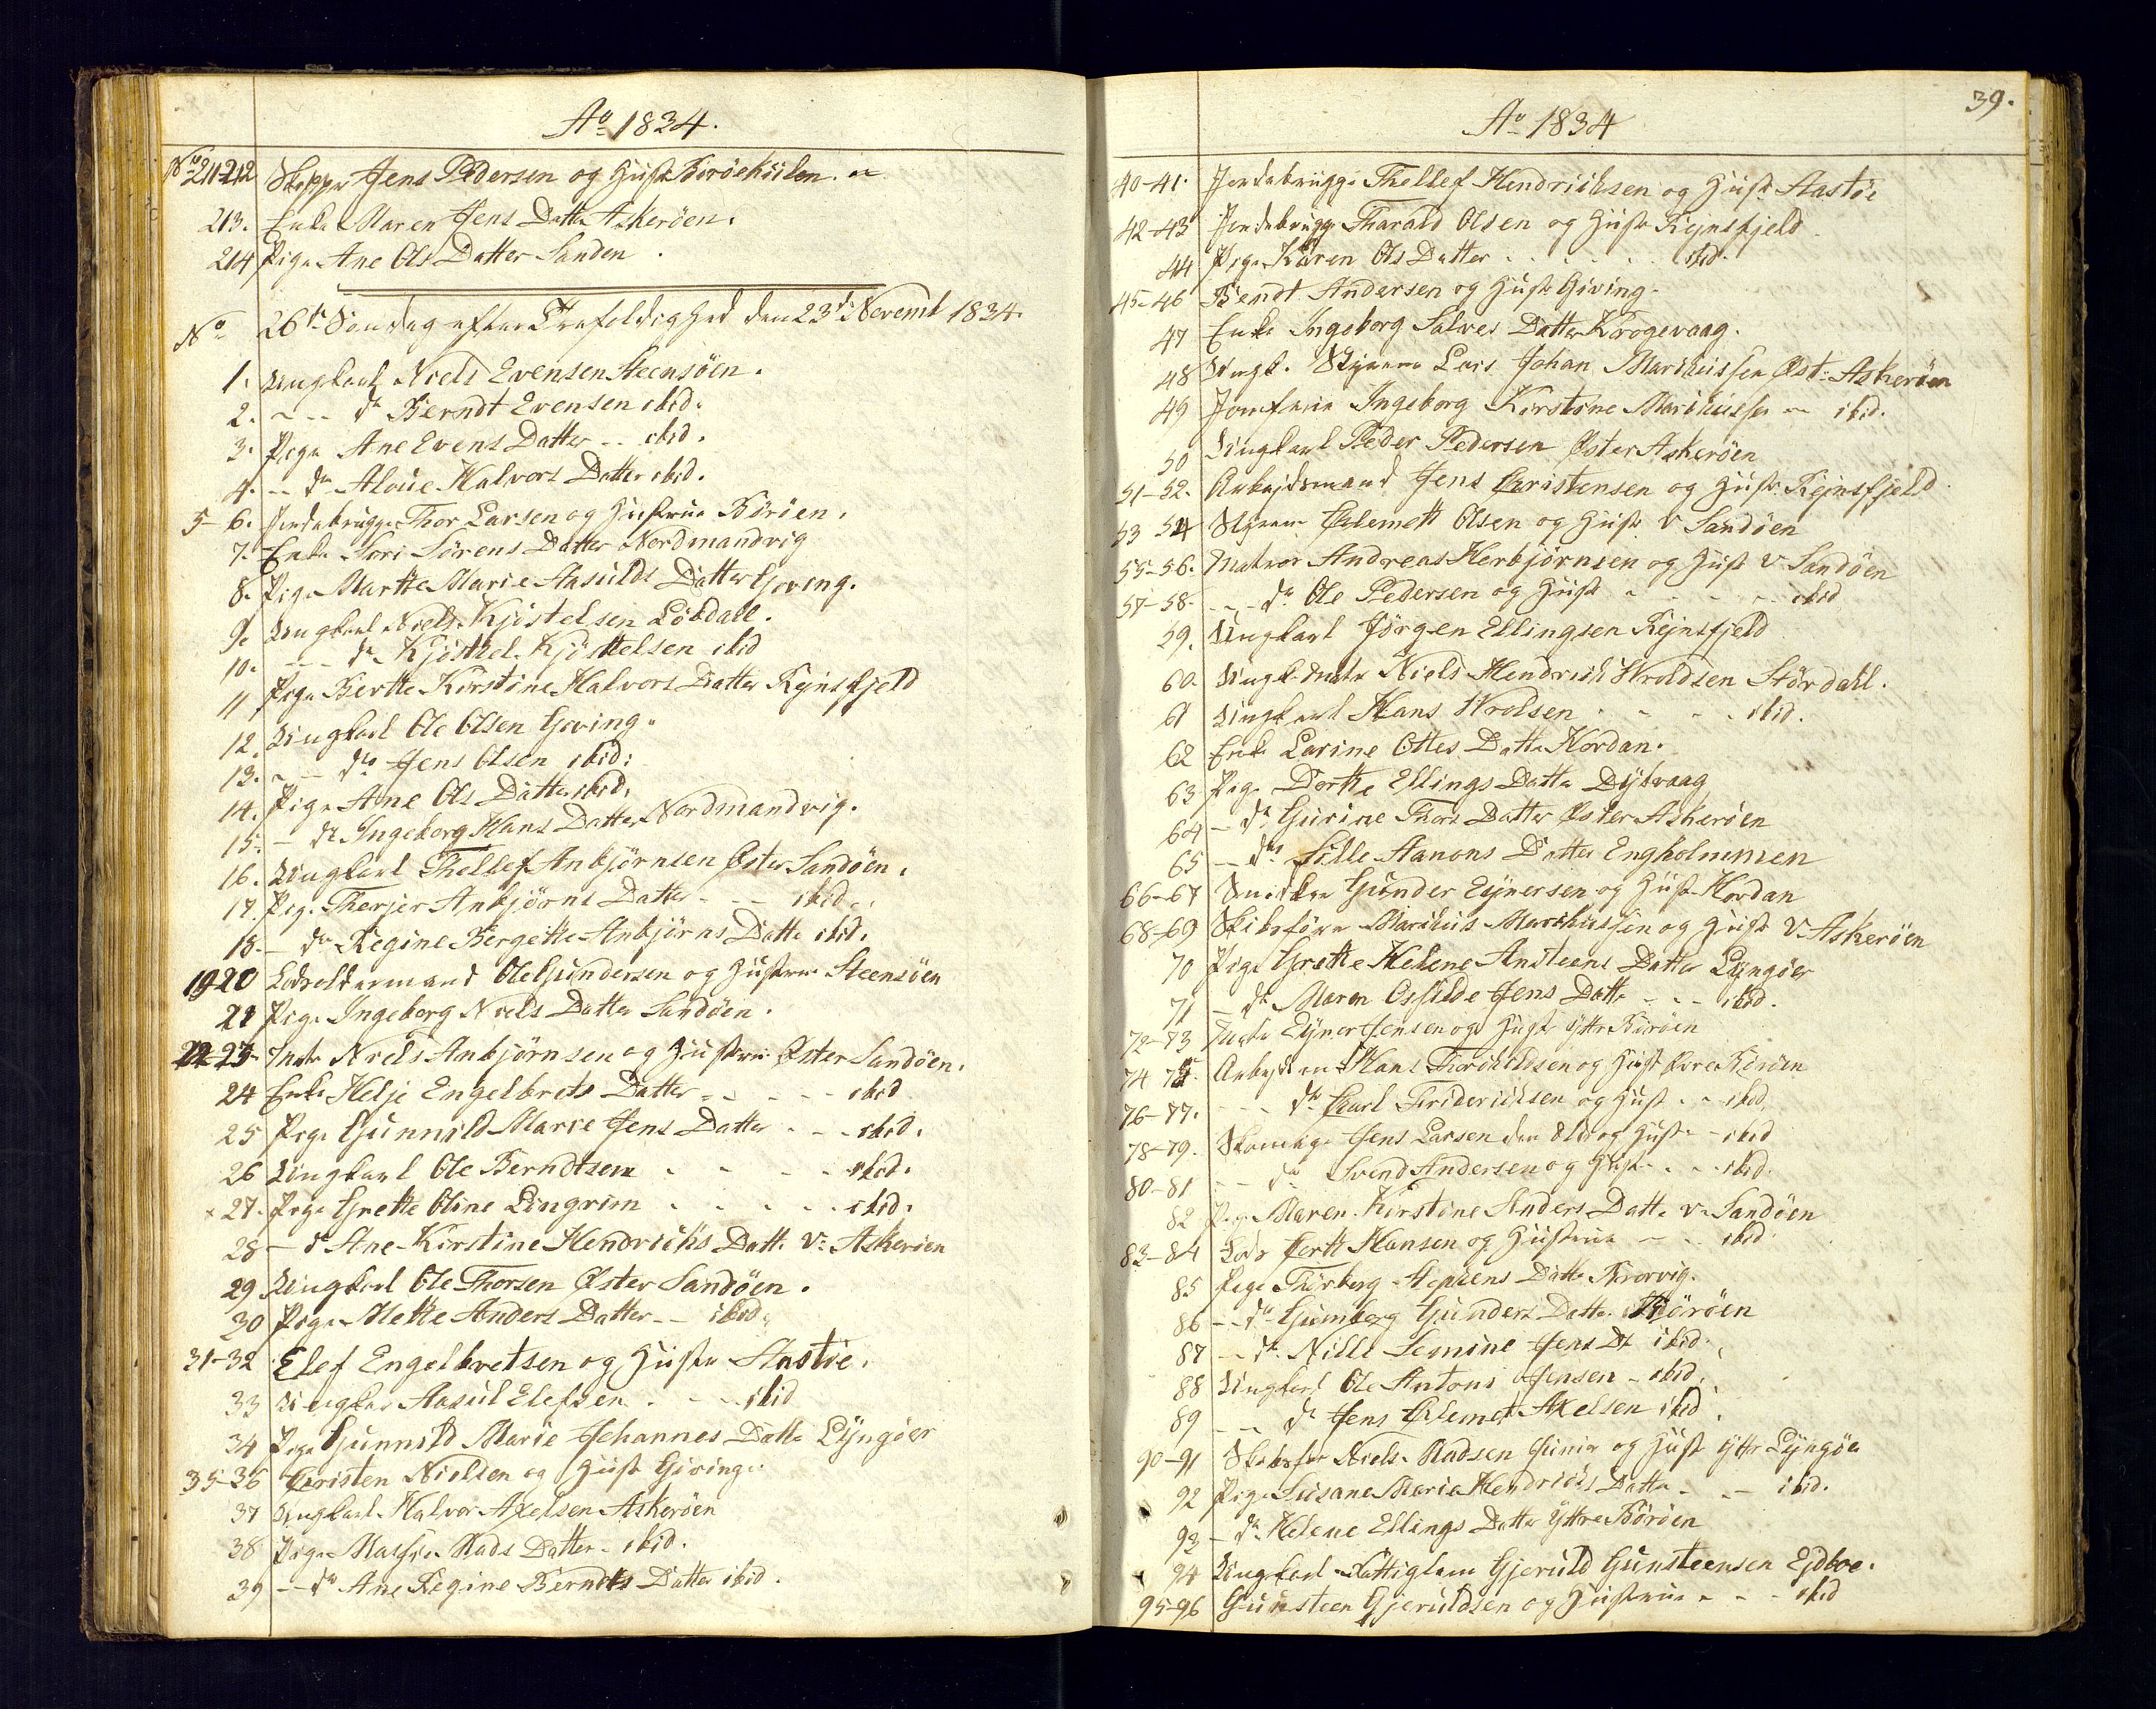 Ao 1834.
No 211-212 Skipper Jens Pedersen og Hust Boröekilen.
213. Enke Maren Jens Datter Askeröen.
214 Pige Ane Ols Datter Sanden.
No 26de Söndag efter Trefoldighed den 23de Novemb 1834.
1. Ungkarl Niels Evensen Steensöen.
2. -- do Berndt Evensen ibid.
3. Pige Ane Evens Datter -- ibid.
4. -- do Aloue Halvors Datter ibid.
5-6. Jordebrugger Thor Larsen og Hustrue Böröen.
7. Enke Sori Sörens Datter Nordmandvig
8. Pige Marthe Marie Aasulds Datter Gjeving.
9. Ungkarl Niels Kjöstelsen Löbdall.
10. --- do Kjösttel Kjösttelsen ibid
11 Pige Berthe Kirstine Halvors Datter Rejnsfjeld
12. Ungkarl Ole Olsen Gjeving.
13. -- do Jens Olsen ibid:
14. Pige Ane Ols Datter ibid.
15. - do Ingeborg Hans Datter Nordmandvig.
16. Ungkarl Thellef Anbjörnsen Öster Sandöen.
17. Pige Therjer Anbjörns Datter - - - ibid.
18. - do Regine Bergette Anbjörns Datter ibid.
19-20 Lodsoldermand Ole Gundersen og Hustrue Steensöen
21 Pige Ingeborg Niels Datter Sandöen.
22-23 Matr Niels Anbjörnsen og Hustrue Öster Sandöen.
24 Enke Helje Engelbrets Datter - - - - - ibid
25 Pige Gunnild Marie Jens Datter - - - ibid.
26 Ungkarl Ole Berndtsen - - - - ibid.
× 27. Pige Grette Oline Lingrim - - - - - ibid.
28 - do Ane Kirstine Hendrichs Datt. V: Askeröen
29 Ungkarl Ole Thorsen Öster Sandöen.
30 Pige Mette Anders Datter -- ibid.
31-32 Elef Engelbretsen og Hustr Aastöe.
33 Ungkar Aasul Elefsen . - - ibid
34 Pige Gunnild Marie Johannes Datter Lyngöer
35-36 Christen Nielsen og Hust Gjeving.
37 Ungkarl Halvor Axelsen Askeröen
38 Pige Mads Datter - ibid.
39 -- do Ane Regine Berndts Datter ibid.
39.
Ao 1834
40-41. Jordebrugge Thellef Hendrichsen og Hust Aastöe
42-43 Jordebrugg Tharald Olsen og Hust Rejnsfjeld
44 Pige Karen Ols Datter . . . . . . ibid.
45-46 Bendt Andersen og Hust Gjeving.
47 Enke Ingeborg Salves Datter Krogevaag.
48 Ungk. Styrm Lars Johan Markussen Öst: Askeröen
49 Jomfrue Ingeborg Kirstine Markussen - ibid.
50 Ungkarl Peder Pedersen Öster Askeröen
51-52. Arbejdsmand Jens Christensen og Hust Rejnsfjeld
53 54 Styrm Clemett Olsen og Hust V Sandöen
55-56. Matros Andreas Herbjörnsen og Hust V. Sandöen
57-58. -- do Ole Pedersen og Hust - - - - - ibid
59. Ungkarl Jörgen Ellingsen Rejnsfjeld
60. Ungk. Matr Niels Hendrich Wroldsen Stördall.
61 Ungkarl Hans Wrolsen . . - - ibid.
62 Enke Larine Ottes Datter Hordan.
63 Pige Dorthe Ellings Datter Dybvaag
64 - do Gurine Thors Datter Öster Askeröen
65 -- do Sille Aanons Datter Engholmmen
66-67 Snidker Gunder Ejnersen og Hust Hordan
68-69 Skibsföre Markus Markussen og Hust V. Askeröen
70 Pige Grethe Helene Ansteens Datter Lyngöer
71 - do Maren Osfulde Jens Datt. - - - ibid.
72-73 Matr Ejner Jensen og Hust Yttr Böröen
74 75. Arbejdsm Hans Thorkildsen og Hust Övre Böröen
76-77. --- do Carl Friderichsen og Hust . - ibid.
78-79. Skomage Jens Larsen den Eldr og Hust - ibid
80-81 -- do Svend Andersen og Hust . . - ibid.
82 Pige Maren Kirstine Anders Datt. V. Sandöen
83-84 Lods Gertt Hansen og Hustrue - - . ibid.
85 Pige Thorborg Stephens Datter Krorvig.
86 -- do Gumborg Gunders Datter Böröen
87 -- do Nille Semine Jens Dt ibid.
88 Ungkarl Ole Antoni Jensen - ibid.
89 -- do Jens Clemet Axelsen ibid
90-91 Skibsför Niels Madsen Junior og Hust Yttr Lyngöe
92 Pige Susane Marie Hendrichs Datter - - - ibid.
93 - do Helene Ellings Datter Yttre Böröen
94 Ungkarl Fattiglem Gjeruld Gunsteensen Ejdboe.
95-96 Gunsteen Gjeruldsen og Hustrue - - - ibid